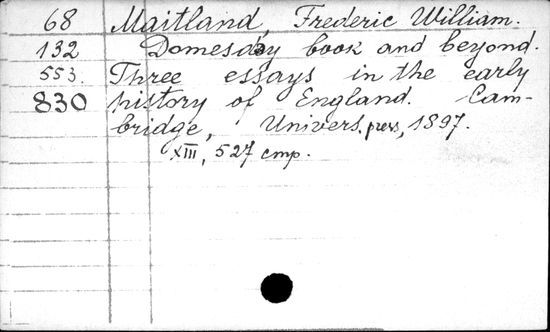 68 Maitland, Frederic William.
132 Domesday book and beyond.
553. Three essays in the early
830 history of England. Cam-
bridge, Univers. press, 1897.
XIII, 527 стр.